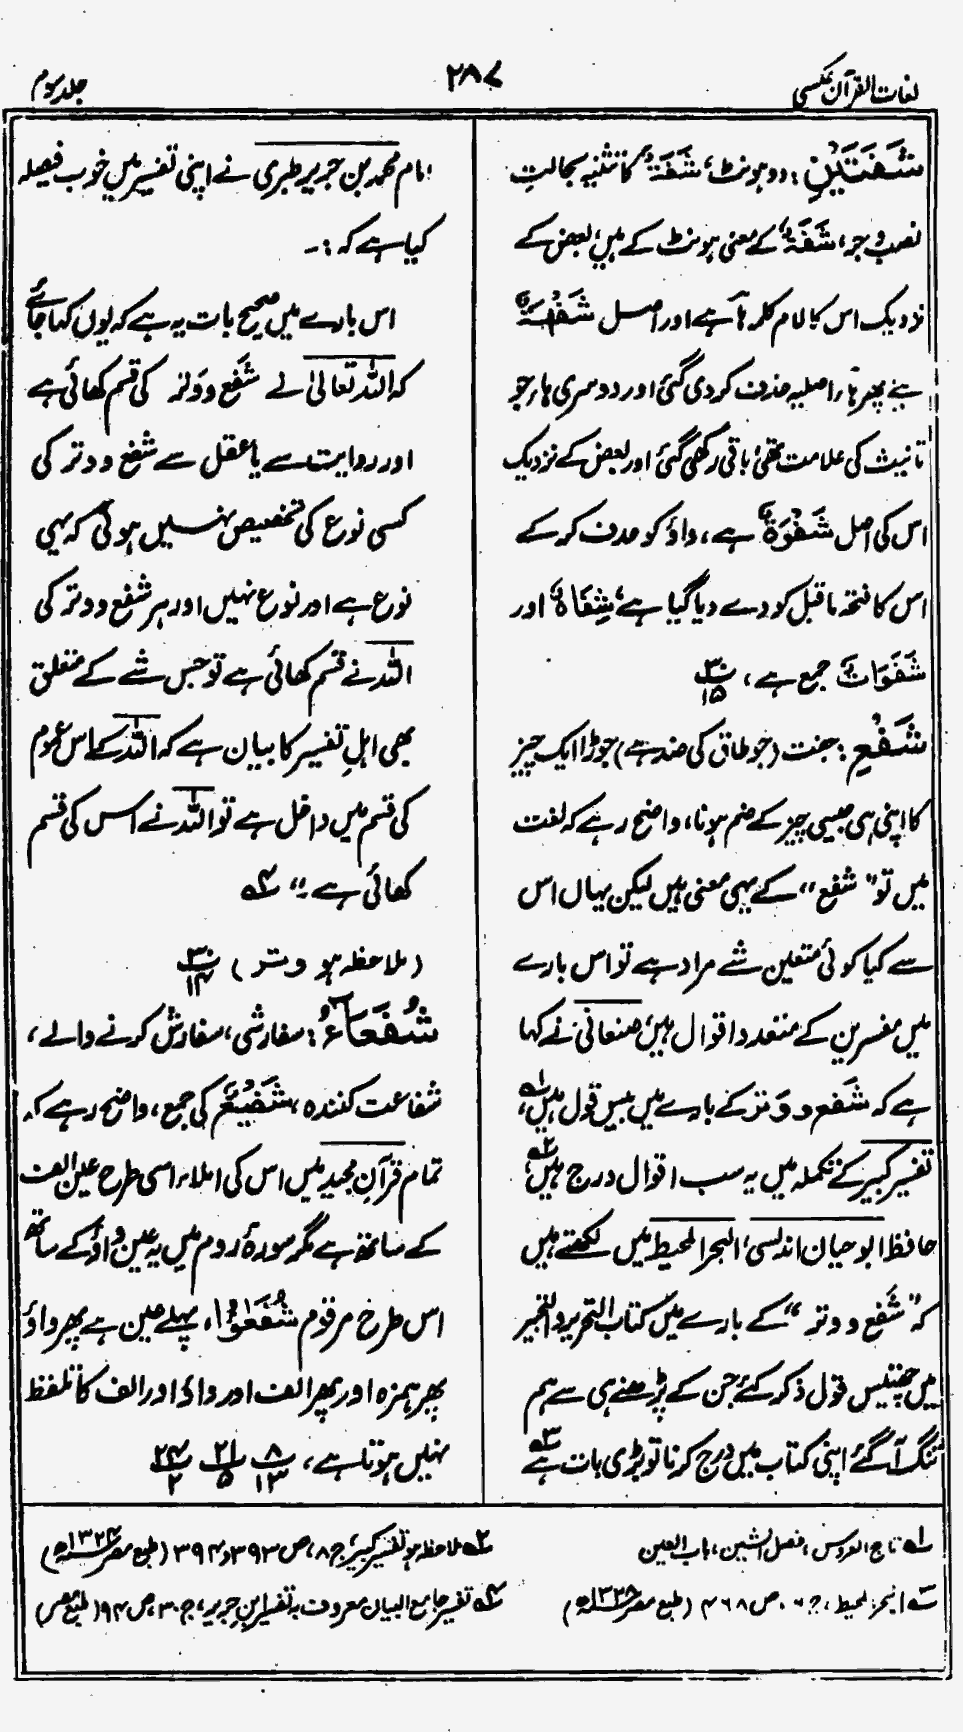 لغات القرآن عکسی
۲۸۷
جلد سوم
شَفَتَیْنِ: دو ہونٹ، شَفَۃٌ کا تثنیہ بحالتِ
نصب و جر، شَفَۃٌ کے معنی ہونٹ کے ہیں، بعض کے
نزدیک اس کا لام کلمہ ہآ ہے اور اصل شَفْھَۃٌ
ہے پھر ہَا اصلیہ حذف کر دی گئی اور دوسری ہا، جو
تانیث کی علامت تھی، باقی رکھی گئی اور بعض کے نزدیک
اس کی اصل شَفْوَۃٌ ہے، واؤ کو حذف کر کے
اس کا فتحہ ماقبل کو دے دیا گیا ہے، شِفَاہٌ اور
شَفَوَاتٌ جمع ہے، ۳۰/۱۵
شَفْعِ: جفت (جو طاق کی ضد ہے) جوڑا ایک چیز
کا اپنی ہی جیسی چیز کے ضم ہونا، واضح رہے کہ لغت
میں تو "شفع" کے یہی معنی ہیں لیکن یہاں اس
سے کیا کوئی متعین شے مراد ہے تو اس بارے
میں مفسرین کے متعدد اقوال ہیں، صنعانی نے کہا
ہے کہ شَفع و وَتر کے بارے میں بیس قول ہیں، لہ
تفسیر کبیر کے تکملہ میں یہ سب اقوال درج ہیں، ۲ہ
حافظ ابو حیان اندلسی، البحر المحیط میں لکھتے ہیں
کہ "شَفع و وتر" کے بارے میں کتاب التحریر والتحبیر
میں چھتیس قول ذکر کئے جن کے پڑھنے ہی سے ہم
تنگ آ گئے اپنی کتاب میں درج کرنا تو بڑی بات ہے ۳ہ
امام محمد بن جریر طبری نے اپنی تفسیر میں خوب فیصلہ
کیا ہے کہ :۔
اس بارے میں صحیح بات یہ ہے کہ یوں کہا جائے
کہ اللہ تعالیٰ نے شَفع و وَتر کی قسم کھائی ہے
اور روایت سے یا عقل سے شفع و وتر کی
کسی نوع کی تخصیص نہیں ہوئی کہ یہی
نوع ہے اور نوع نہیں اور ہر شفع و وتر کی
اللہ نے قسم کھائی ہے تو جس شے کے متعلق
بھی اہلِ تفسیر کا بیان ہے کہ اللہ کے اس عموم
کی قسم میں داخل ہے تو اللہ نے اس کی قسم
کھائی ہے ۔" ۴ہ
(ملاحظہ ہو وتر) ۳۰/۱۴
شُفَعَآءُ: سفارشی، سفارش کرنے والے،
شفاعت کنندہ، شَفِیْعٌ کی جمع، واضح رہے کہ
تمام قرآنِ مجید میں اس کی املاء اسی طرح عین الف
کے ساتھ ہے مگر سورۂ روم میں یہ عین و واؤ کے ساتھ
اس طرح مرقوم شُفَعٰٓؤُا، پہلے عین ہے پھر واؤ
پھر ہمزہ اور پھر الف اور واؤ اور الف کا تلفظ
نہیں ہوتا ہے، ۸/۱۳ ۲۱/۵ ۲۴/۲
لہ تاج العروس، فصل الشین، باب العین
۲ہ ملاحظہ ہو تفسیر کبیر، ج ۸، ص ۳۹۳ و ۳۹۴ (طبع مصر ۱۳۲۴ھ)
۳ہ البحر المحیط، ج ۰۰، ص ۴۶۸ (طبع مصر ۱۳۲۸ھ)
۴ہ تفسیر جامع البیان معروف بہ تفسیر ابن جریر، ج ۳۰، ص ۹۴ (طبع مصر)